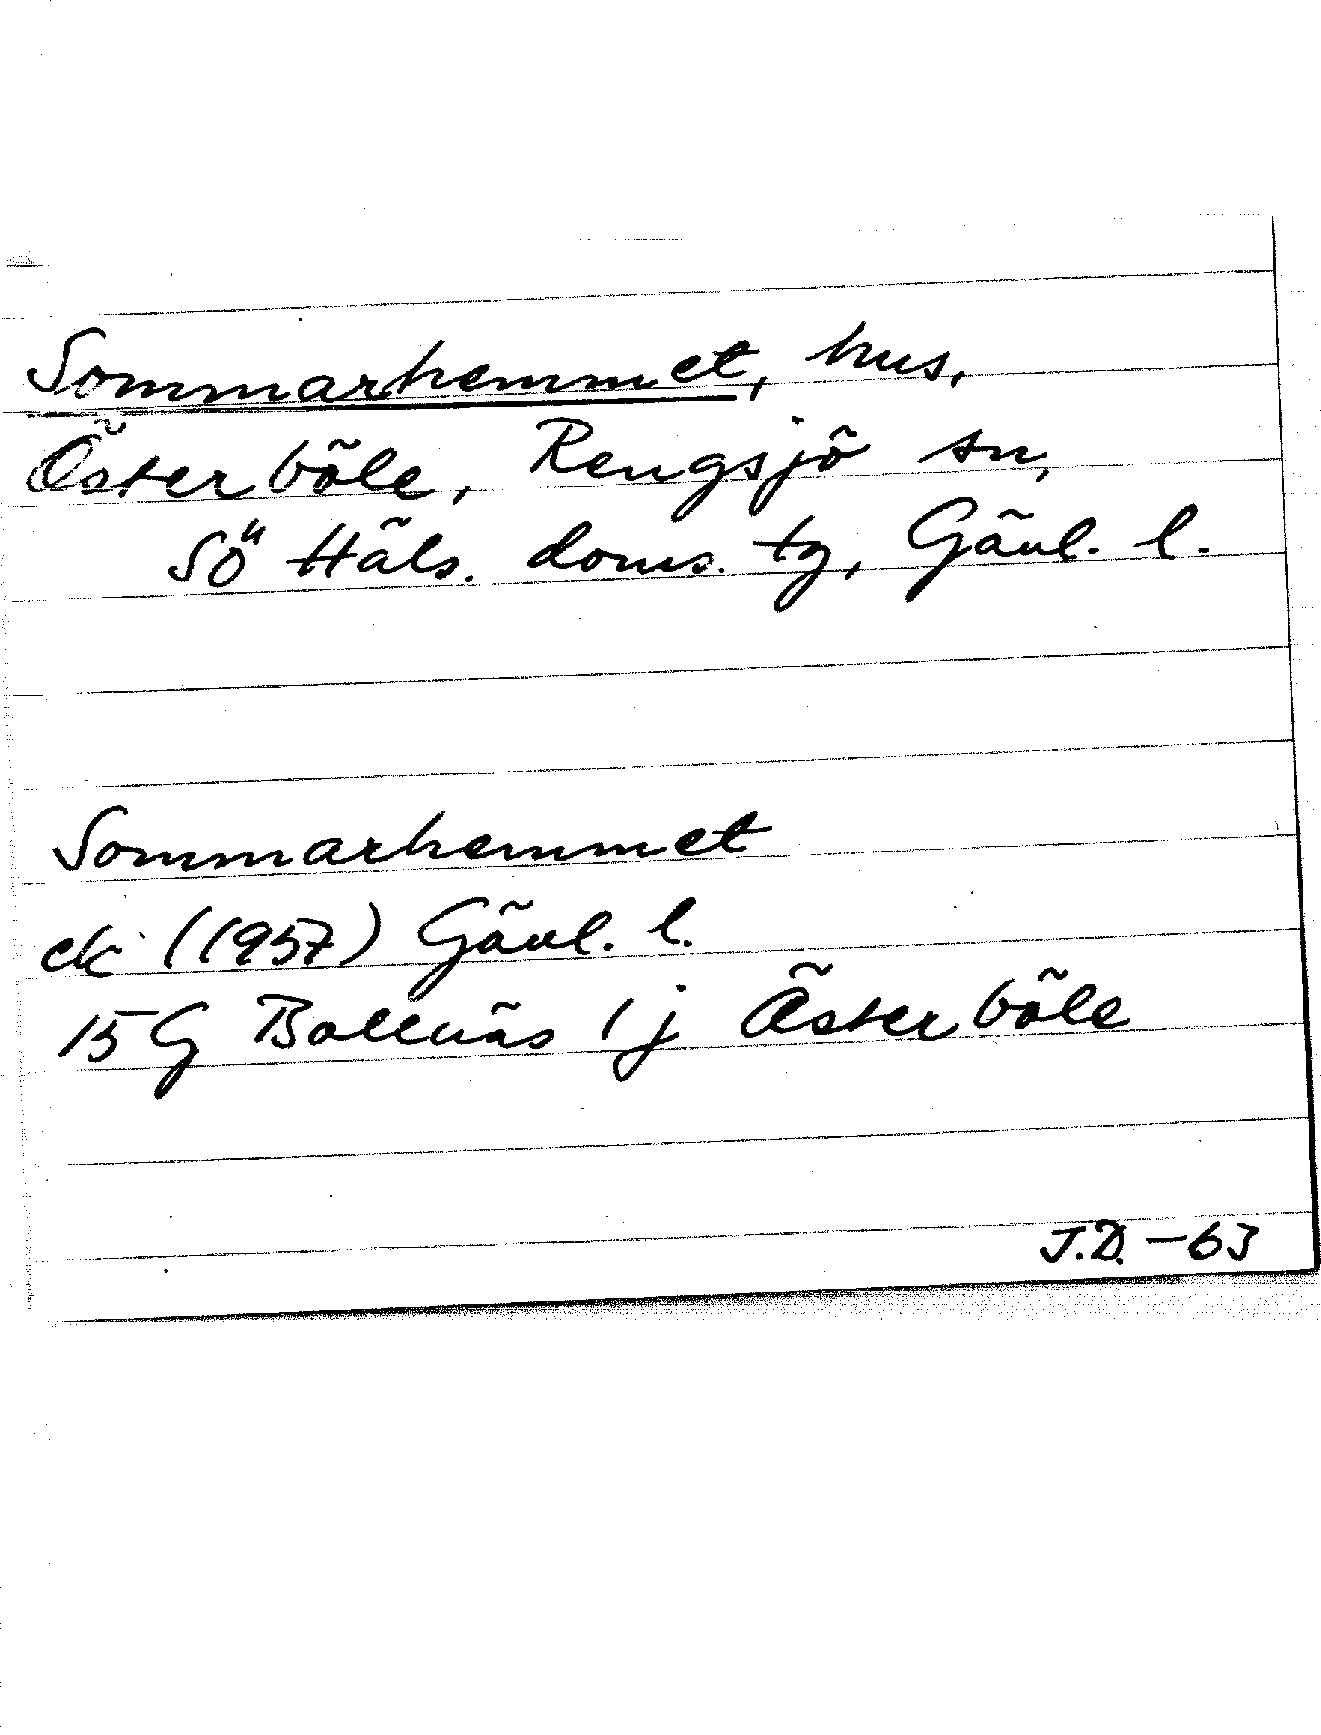 Sommarhemmet, hus,
Österböle, Rengsjö sn,
Sö Häls. doms. tg, Gävl. l.
Sommarhemmet
ek (1957) Gävl. l.
15G Bollnäs 1j Österböle
J.D. -63